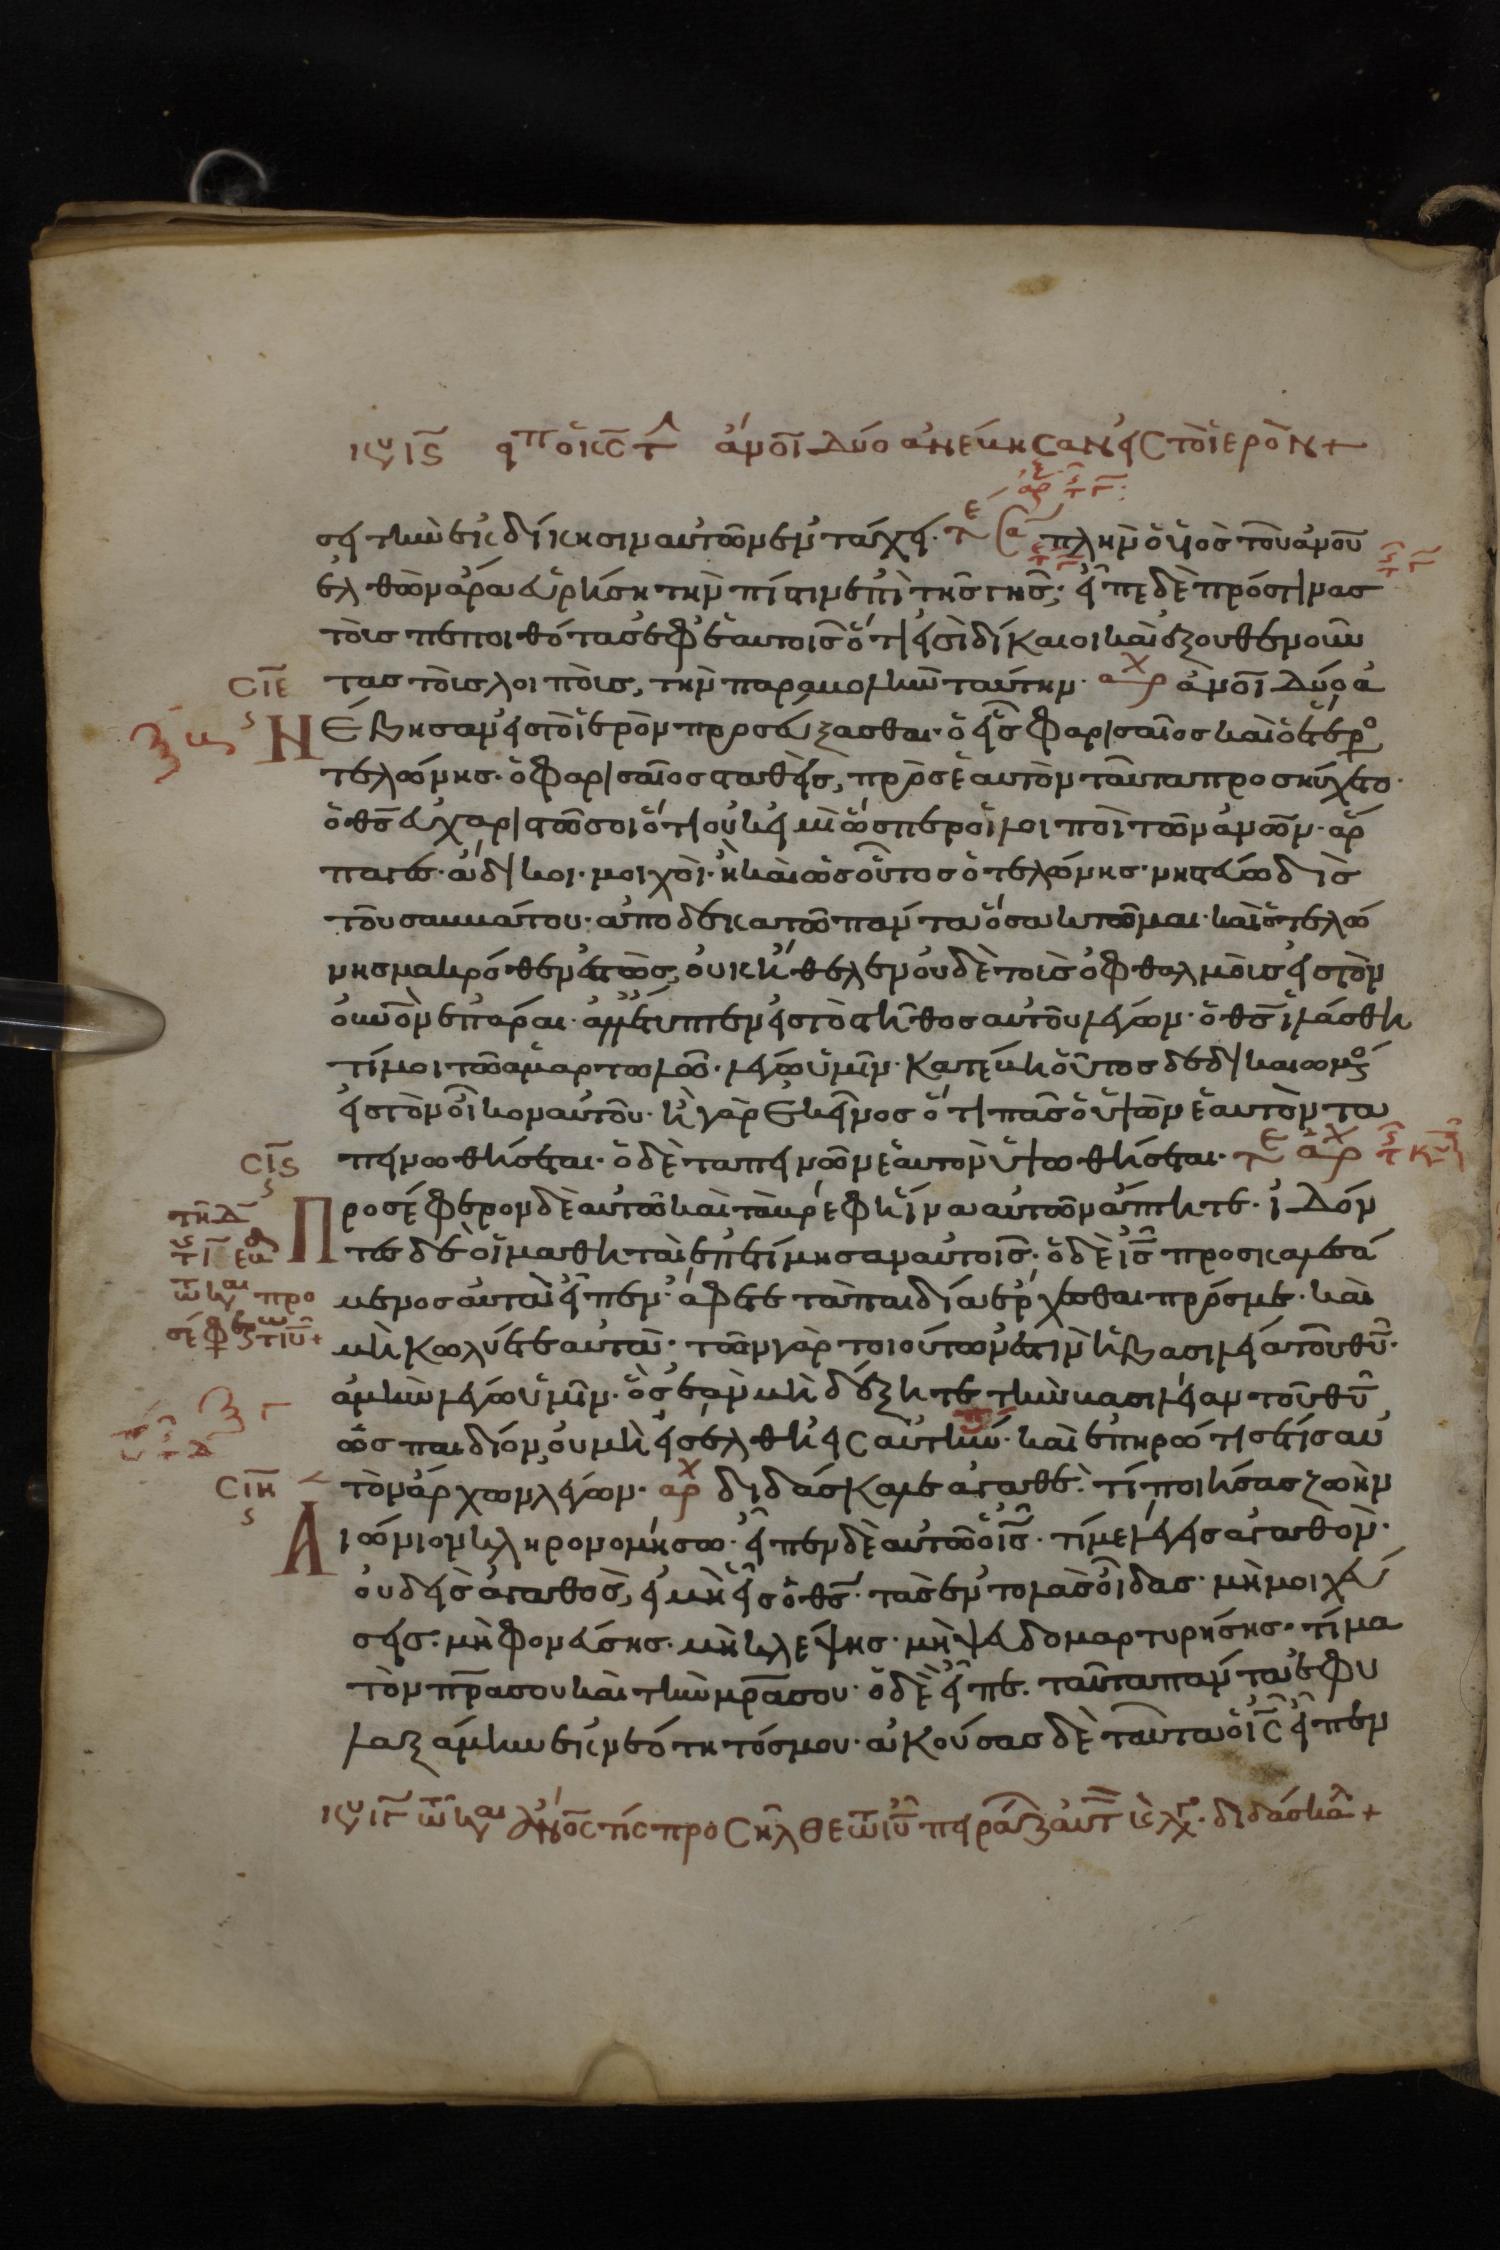 ἄνοι δύο ἀνέβησαν εἰς τὸ ἱερὸν +
σει τὴν ἐκδίκησιν αὐτῶν ἐν τάχει· πλὴν ὁ υἱὸς τοῦ ἀνου
ἐλθὼν ἆρα εὑρήσει τὴν πίστιν ἐπὶ τῆς γῆς; εἶπε δὲ πρός τινας
τοὺς πεποιθότας ἐφ ἑαυτοῖς ὅτι εἰσὶ δίκαιοι καὶ ἐξουθενοῦν
τας τοὺς λοιποὺς, τὴν παραβολὴν ταύτην· ἄνοι δύο ἀ
CIE
νέβησαν εἰς τὸ ἱερὸν προσεύξασθαι· ὁ εἷς φαρισαῖος καὶ ὁ ἕτερος
τελώνης· ὁ φαρισαῖος σταθεὶς, πρὸς ἑαυτὸν ταῦτα προσηύχετο·
ὁ θς εὐχαριστῶ σοι ὅτι οὐκ εἰμὶ ὥσπερ οἱ λοιποὶ τῶν ἀνων· ἅρ
παγες· ἄδικοι· μοιχοὶ· ἢ καὶ ὡς οὗτος ὁ τελώνης· νηστεύω δὶς
τοῦ σαββάτου· ἀποδεκατῶ πάντα ὅσα κτῶμαι· καὶ ὁ τελώ
νης μακρόθεν ἑστὼς, οὐκ ἤθελεν οὐδὲ τοὺς ὀφθαλμοὺς εἰς τὸν
οὐνον ἐπάραι· ἀλλ ἔτυπτεν εἰς τὸ στῆθος αὐτοῦ λέγων· ὁ θς ἱλάσθητι
μοι τῶ ἁμαρτωλῶ· λέγω ὑμῖν· κατέβη οὗτος δεδικαιωμένος
εἰς τὸν οἶκον αὐτοῦ· ἢ γὰρ ἐκεῖνος ὅτι πᾶς ὁ ὑψῶν ἑαυτὸν τα
πεινωθήσεται· ὁ δὲ ταπεινῶν ἑαυτὸν ὑψωθήσεται·
CIS
Προσέφερον δὲ αὐτῶ καὶ τὰ βρέφη ἵνα αὐτῶν ἅπτητε· ἰδόν
τες δὲ οἱ μαθηταὶ ἐπετίμησαν αὐτοῖς· ὁ δὲ ις προσκαλεσά
μενος αὐτὰ εἶπεν· ἄφετε τὰ παιδία ἔρχεσθαι πρός με· καὶ
μὴ κωλύετε αὐτά· τῶν γὰρ τοιούτων ἐστὶν ἡ βασιλεία τοῦ θυ·
ἀμὴν λέγω ὑμῖν· ὃς ἐὰν μὴ δέξητε τὴν βασιλείαν τοῦ θυ
ὡς παιδίον, οὐ μὴ εἰσέλθη εἰς αὐτήν· καὶ ἐπηρώτησέ τις αὐ
CIH
τὸν ἄρχων λέγων· διδάσκαλε ἀγαθὲ· τί ποιήσας ζωὴν
Αἰώνιον κληρονομήσω· εἶπεν δὲ αὐτῶ ὁ ις· τί με λέγεις ἀγαθὸν·
οὐδεὶς ἀγαθὸς, εἰ μὴ εἷς ὁ θς· τὰς ἐντολὰς οἶδας· μὴ μοιχεύ
σεις· μὴ φονεύσης· μὴ κλέψης· μὴ ψευδομαρτυρήσης· τίμα
τὸν πρα σου καὶ τὴν μρα σου· ὁ δὲ εἶπε· ταῦτα πάντα ἐφυ
λαξάμην ἐκ νεότητός μου· ἀκούσας δὲ ταῦτα ὁ ις εἶπεν